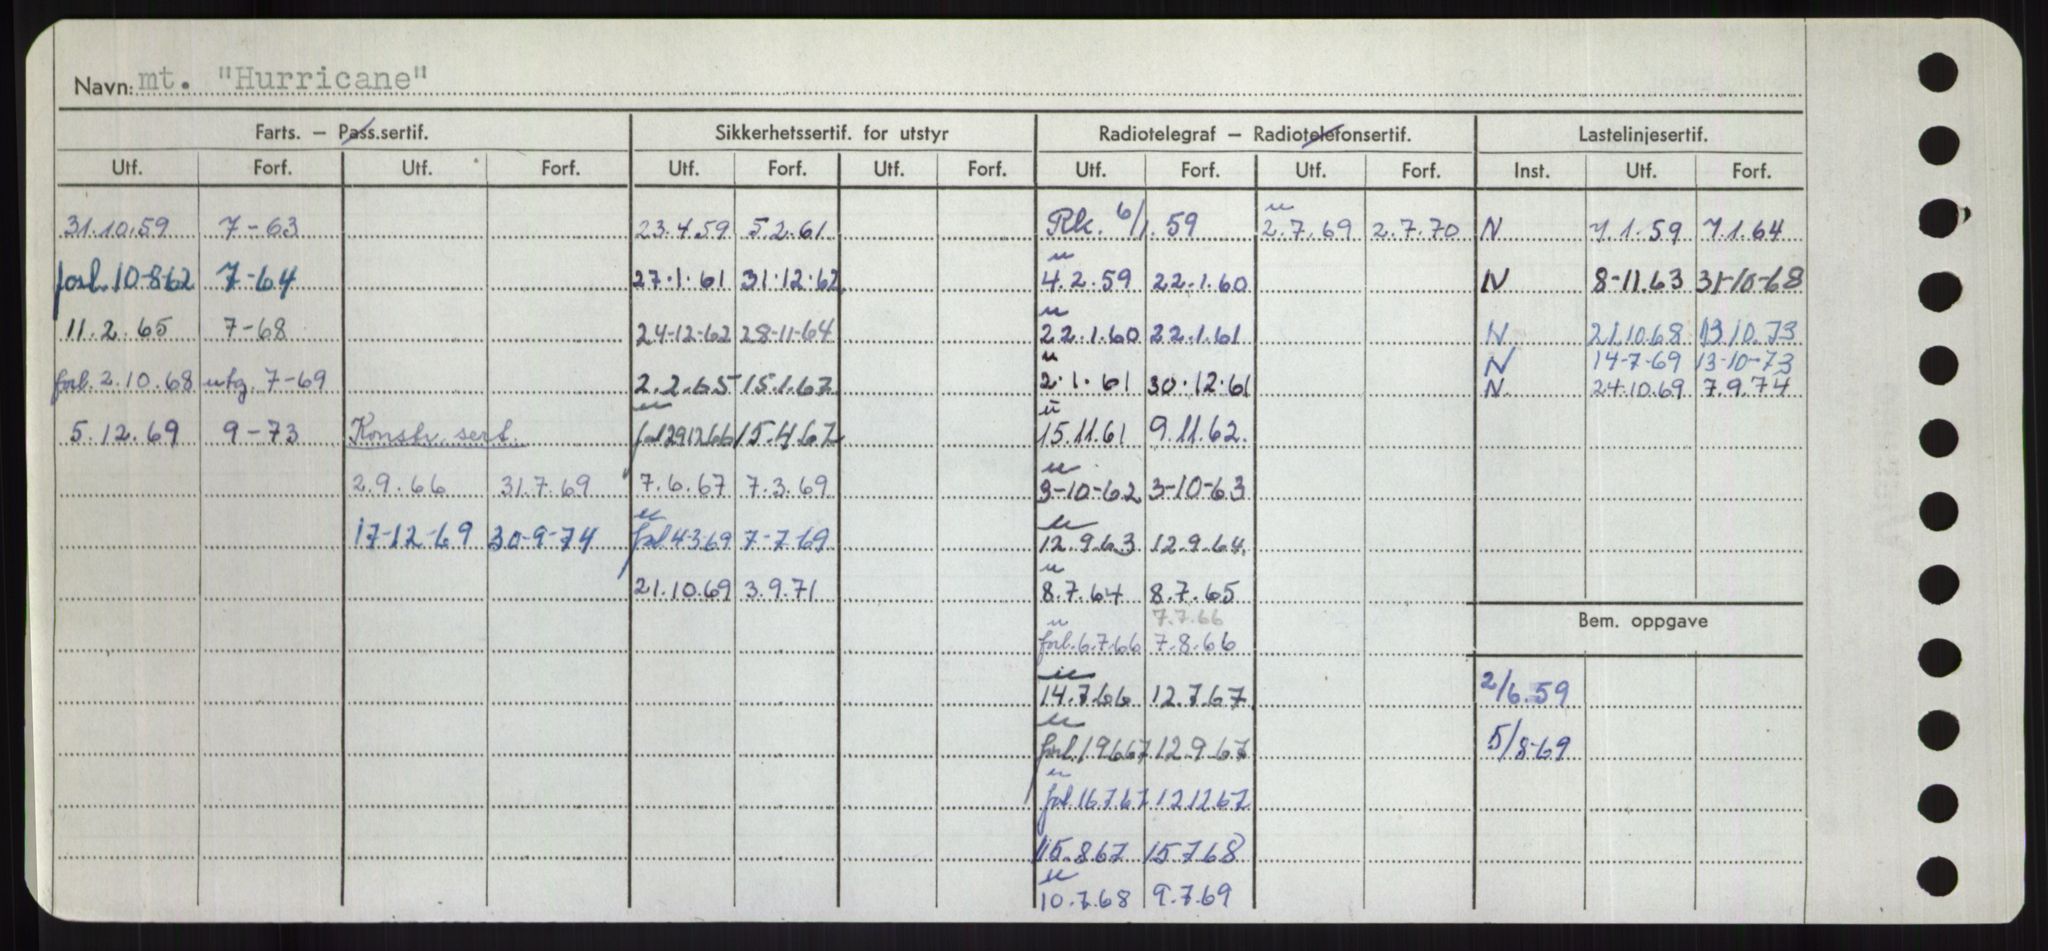 Navn: mt. "Hurricane"
Farts. – Pass.sertif. Sikkerhetssertif. for utstyr Radiotelegraf – Radiotelefonsertif. Lastelinjesertif.
Utf. Forf. Utf. Forf. Utf. Forf. Utf. Forf. Utf. Forf. Utf. Forf. Inst. Utf. Forf.
31.10.59 7-63 23.4.59 5.2.61 Rk. 6/1.59 u 2.7.69 2.7.70 N 7.1.59 7.1.64
forl. 10-8-62 7-64 27.1.61 31.12.62 u 4.2.59 22.1.60 N 8-11.63 31-10-68
11.2.65 7-68 24-12-62 28-11-64 u 22.1.60 22.1.61 N 21.10.68 13.10.73
N 14-7-69 13-10-73
forl. 2.10.68 utg. 7-69 2.2.65 15.1.67 u 2.1.61 30.12.61 N 24.10.69 7.9.74
5.12.69 9-73 Konstr. sert. u forl 29.12.66 15.4.67 u 15.11.61 9.11.62
2.9.66 31.7.69 7.6.67 7.3.69 u 3-10-62 3-10-63
17-12-69 30-9-74 u forl 4-3-69 7-7-69 u 12.9.63 12.9.64
21.10.69 3.9.71 u 8.7.64 8.7.65
7.7.66
Bem. oppgave
u forl. 6.7.66 7.8.66
u 14.7.66 12.7.67 2/6.59
u forl. 19.6.67 12.9.67 5/8-69
u forl 16.7.67 12.12.67
15.8.67 15.7.68
u 10.7.68 9.7.69